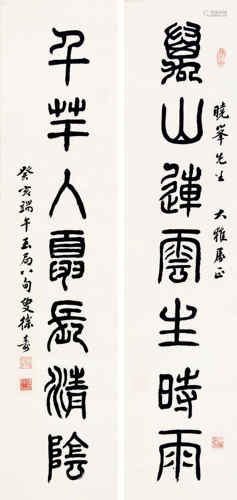 萬山連雲生時雨
曉峯先生 大雅屬正
千竿入夏長清陰
癸亥端午 八旬叟徐